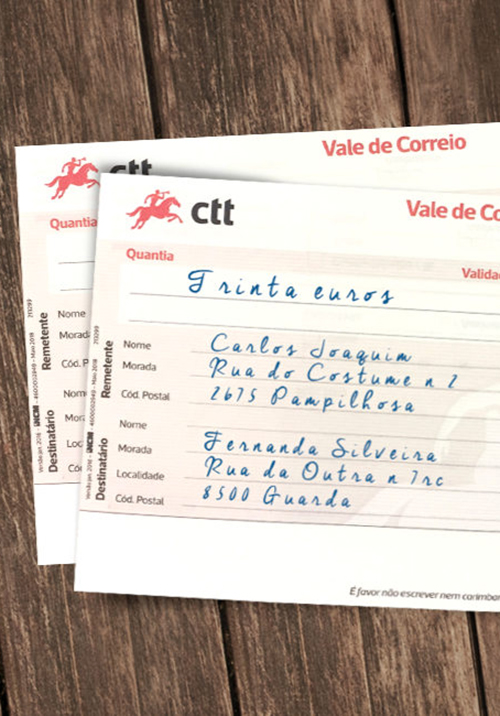 Vale de Correio
ctt
Quantia
Nome
Morada
Cód. P
Nom
Mor
Loc
Cód
Remetente
Destinatário
ctt
Vale de Co
Quantia
Validad
Trinta euros
Nome Carlos Joaquim
Morada Rua do Costume n 2
Cód. Postal 2675 Pampilhosa
Nome
Morada Fernanda Silveira
Localidade Rua da Outra n 7rc
Cód. Postal 8500 Guarda
Remetente
Destinatário
É favor não escrever nem carimbar